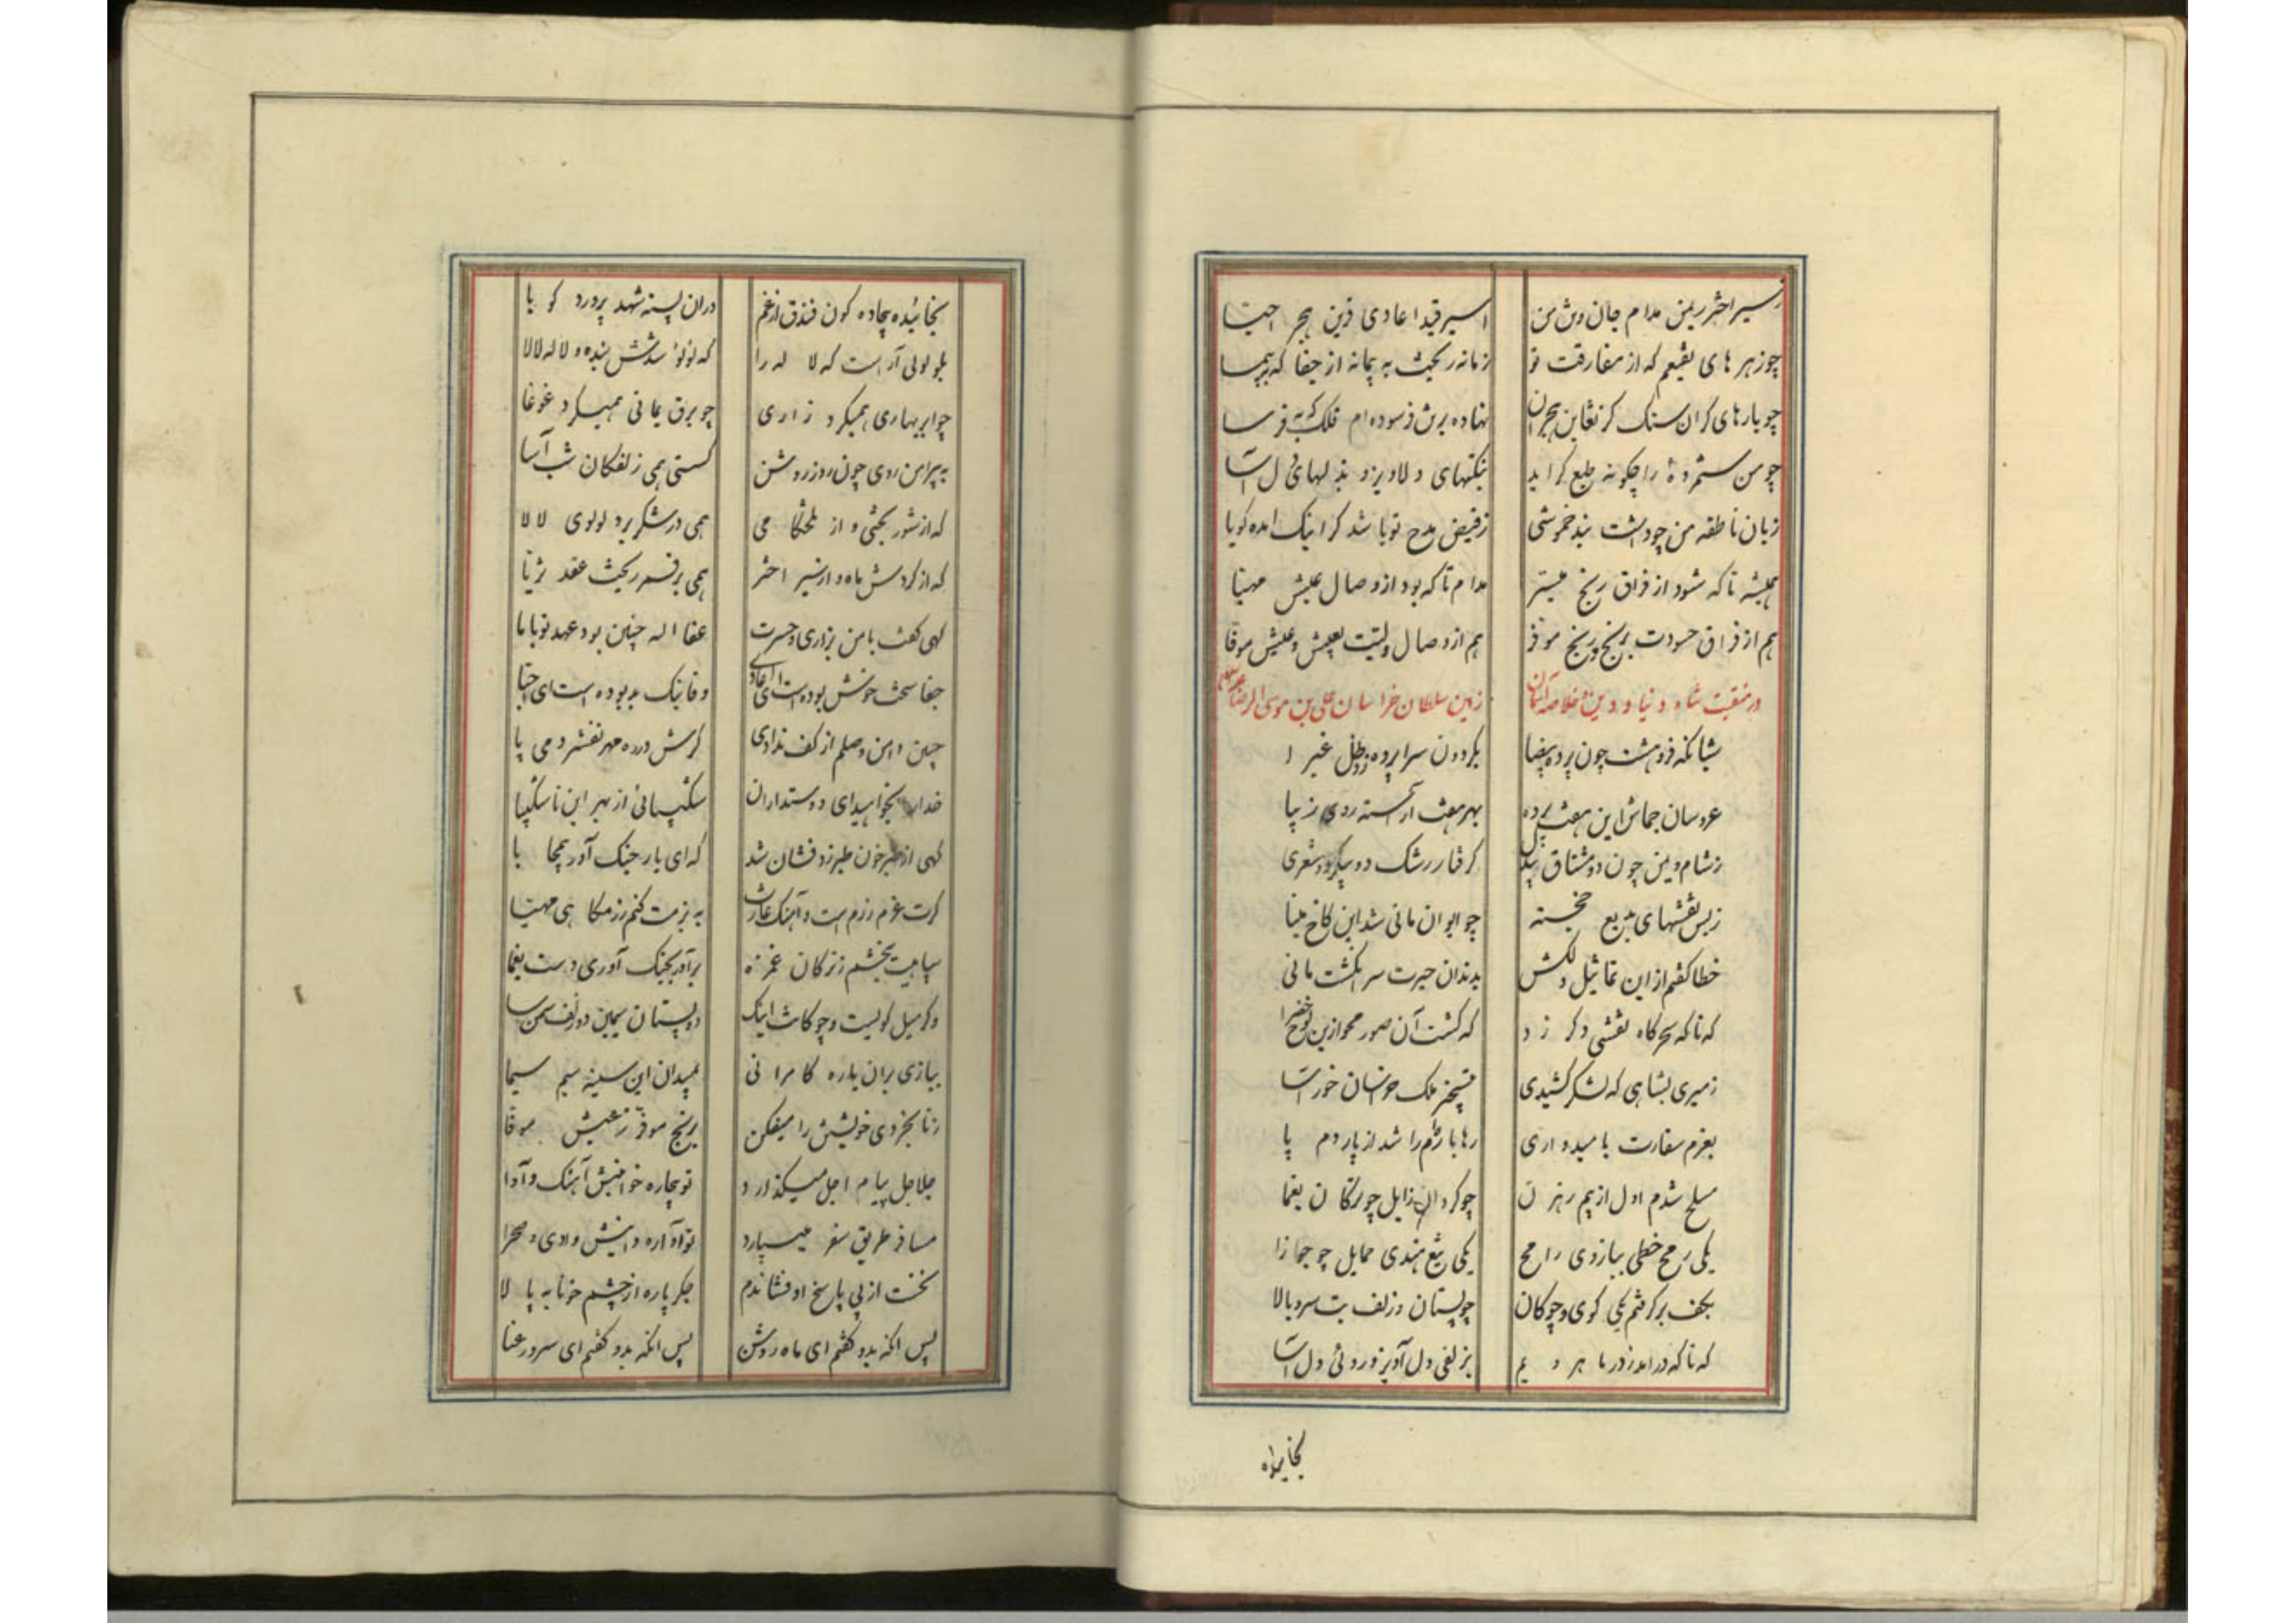 ز سیر اختر ریمن مدام جان و تن من اسیر قید اعادی قرین هجر احبتا
چو زهرهای نقیعم که از مفارقت تو زمانه ریخت به پیمانه از جفا که بپیما
چو بارهای کران سنک کز نقاین هجران نهاده برتن فرسوده‌ام فلک که بفرسا
چو من ستمزدهٔ را چکونه طبع کراید بنکتهای دلاویز و بذلهای دل آسا
زبان ناطقه من چو داشت بند خموشی ز فیض مدح تو باشد کر اینک امده کویا
همیشه تا که شود از فراق رنج میسر مدام تا که بود از وصال عیش مهیا
هم از فراق حسودت برنج و رنج موفر هم از وصال ولیت بعیش و عیش موفا
در منقبت شاه دنیا و دین و خلاصه آسمان و زمین سلطان خراسان علی بن موسی الرضا علیه‌السلام
شبانکه فروهشت چون پرده بیضا بکردون سراپرده زد ظل غبرا
عروسان جماش این هفت پرده بهر هفت اراسته روی زیبا
ز شام و یمن چون دو مشتاق بیدل کرفتار رشک دو پیکر دو شعری
ز بس نقشهای بدیع خجسته چو ایوان مانی شد این کاخ مینا
خطا کفتم از این تماثیل دلکش بدندان حیرت سر انکشت مانی
که ناکه سحرکاه نقشی دکر زد که کشت آن صور محو ازین لوح خضرا
ز میری بشاهی که لشکر کشیدی بتسخیر ملک خراسان خود آسا
بعزم سفارت بامیدواری رها بارکم را شد از پاردم پا
مسلح شدم اول از بیم رهزن چو کردان زابل چو ترکان یغما
یکی رمح خطی ببازوی رامح یکی تیغ هندی حمایل چو جوزا
بکف برکرفتم یکی کوی و چوکان چو پستان و زلف بت سرو بالا
که ناکه در امد ز در ماهرویم بزلفی دل آویز و روئی دل آسا
بخائیده
بخائیده بیجاده کون فندق از غم دران پسته شهد پرورد کویا
بلولوئی آراست که لاله را که لولو شدش بنده و لاله لالا
چو ابر بهاری همیکرد زاری چو برق یمانی همیکرد غوغا
به پیرامن روی چون روز روشن کسستی همی زلفکان شب آسا
که از شوربختی و از تلخکامی همی در شکر برد لولوی لالا
که از کردش ماه و از سیر اختر همی بر قمر ریخت عقد ثریا
کهی کفت با من بزاری و حسرت عفا اله چنین بود عهد تو با ما
جفا سخت خوش بوده است ای اعادی وفا نیک بد بوده است ای احبا
چنین دامن وصلم از کف ندادی کرش در ره مهر نفشردمی پا
خدارا بخواهید ای دوستداران شکیبائی از بهر این ناشکیبا
کهی از طبرخون طبرزد فشان شد که ای یار جنک آور بیمحابا
کرت عزم رزم است و آهنک غارت به بزمت کنم رزمکاهی مهیا
سپاهیت بخشم ز ترکان غمزه برآور بجنک آوری دست یغما
وکر میل کویست و چوکانت اینک دو پستان سیمین دو زلف سمن سا
ببازی بران باره کامرانی بمیدان این سینه سیم سیما
ز نابخردی خویشتن را میفکن برنج موفر ز عیش موفا
جلاجل پیام اجل میکذارد تو بیچاره خوانیش آهنک و آوا
مسافر طریق سفر میسپارد تو آواره دانیش وادی و صحرا
نخست از پی پاسخ او فشاندم جکر پاره از چشم خونابه پالا
پس انکه بدو کفتم ای ماه روشن پس انکه بدو کفتم ای سرو رعنا